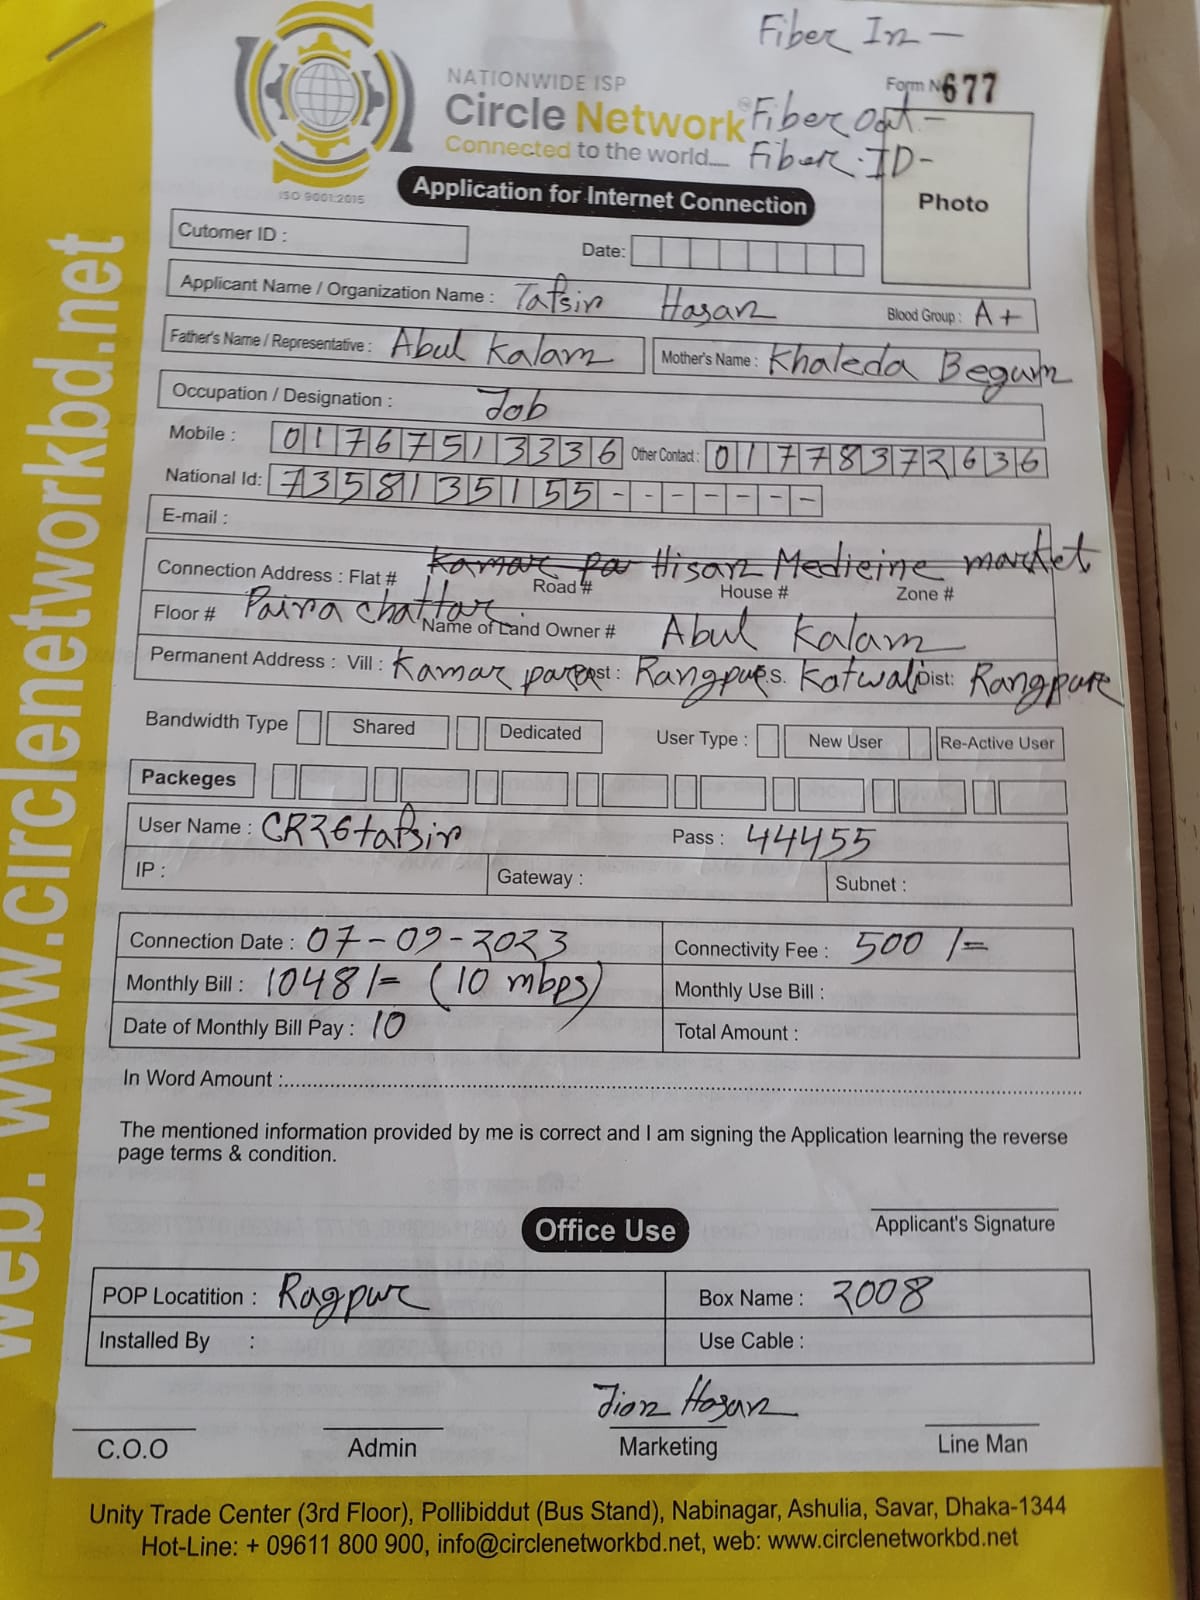 Fiber In -
NATIONWIDE ISP
Form No 677
Circle Network
Fiber Out -
Connected to the world....
Fiber ID -
ISO 9001:2015
Application for Internet Connection
Photo
Cutomer ID :
Date:
Applicant Name / Organization Name : Tafsir Hasan Blood Group : A+
Father's Name / Representative : Abul Kalam Mother's Name : Khaleda Begum
Occupation / Designation : Job
Mobile : 01767513336 Other Contact : 01778372636
National Id: 7358135155-------
E-mail :
Connection Address : Flat # Kamar pa Hisan Medicine market Road # House # Zone #
Floor # Paira chattar Name of Land Owner # Abul Kalam
Permanent Address : Vill : Kamar para Post : Rangpur P.S. Kotwali Dist: Rangpur
Bandwidth Type Shared Dedicated User Type : New User Re-Active User
Packeges
User Name : CR26tafsir Pass : 44455
IP : Gateway : Subnet :
Connection Date : 07-09-2023 Connectivity Fee : 500 /=
Monthly Bill : 1048/= (10 mbps) Monthly Use Bill :
Date of Monthly Bill Pay : 10 Total Amount :
In Word Amount :
The mentioned information provided by me is correct and I am signing the Application learning the reverse
page terms & condition.
Applicant's Signature
Office Use
POP Locatition : Ragpur Box Name : 2008
Installed By : Use Cable :
Hasan
C.O.O Admin Marketing Line Man
Unity Trade Center (3rd Floor), Pollibiddut (Bus Stand), Nabinagar, Ashulia, Savar, Dhaka-1344
Hot-Line: + 09611 800 900, info@circlenetworkbd.net, web: www.circlenetworkbd.net
web: www.circlenetworkbd.net